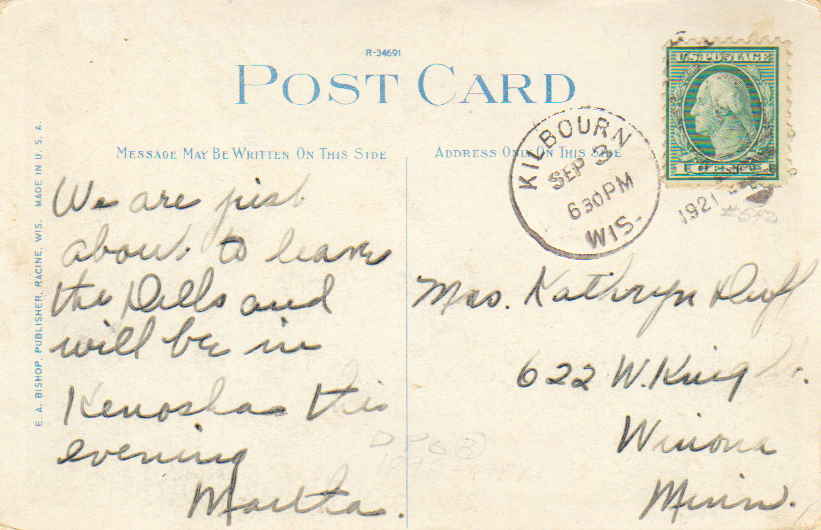 R-34691
POST CARD
MESSAGE MAY BE WRITTEN ON THIS SIDE
ADDRESS ONLY ON THIS SIDE
E. A. BISHOP, PUBLISHER, RACINE, WIS. MADE IN U. S. A.
U.S. POSTAGE
KILBOURN
SEP 3
630 PM
WIS.
1921
We are just
about to leave
the Dells and
will be in
Kenosha this
evening
Martha.
Mrs. Kathryn Duff
622 W. King St.
Winona
Minn.